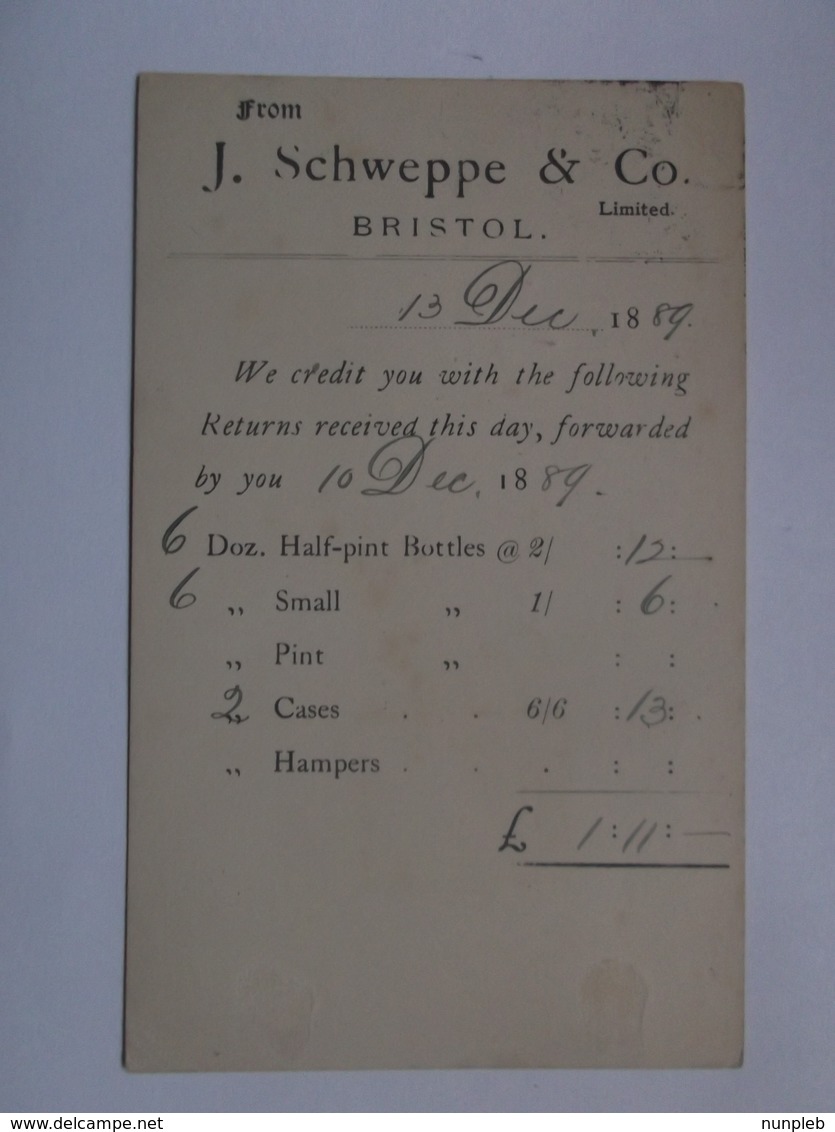 From
J. Schweppe & Co.
Limited.
BRISTOL.
13 Dec, 1889.
We credit you with the following
Returns received this day, forwarded
by you 10 Dec. 1889.
6 Doz. Half-pint Bottles @ 2/ :12:—
6 „ Small „ 1/ : 6: .
„ Pint „ : :
2 „ Cases . . 6/6 :13: .
„ Hampers . . . : :
£ 1:11:—
www.delcampe.net
nunpleb